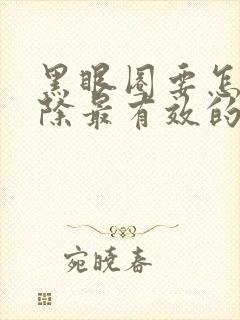 黑眼圈要怎
除最有效的
宛晓春